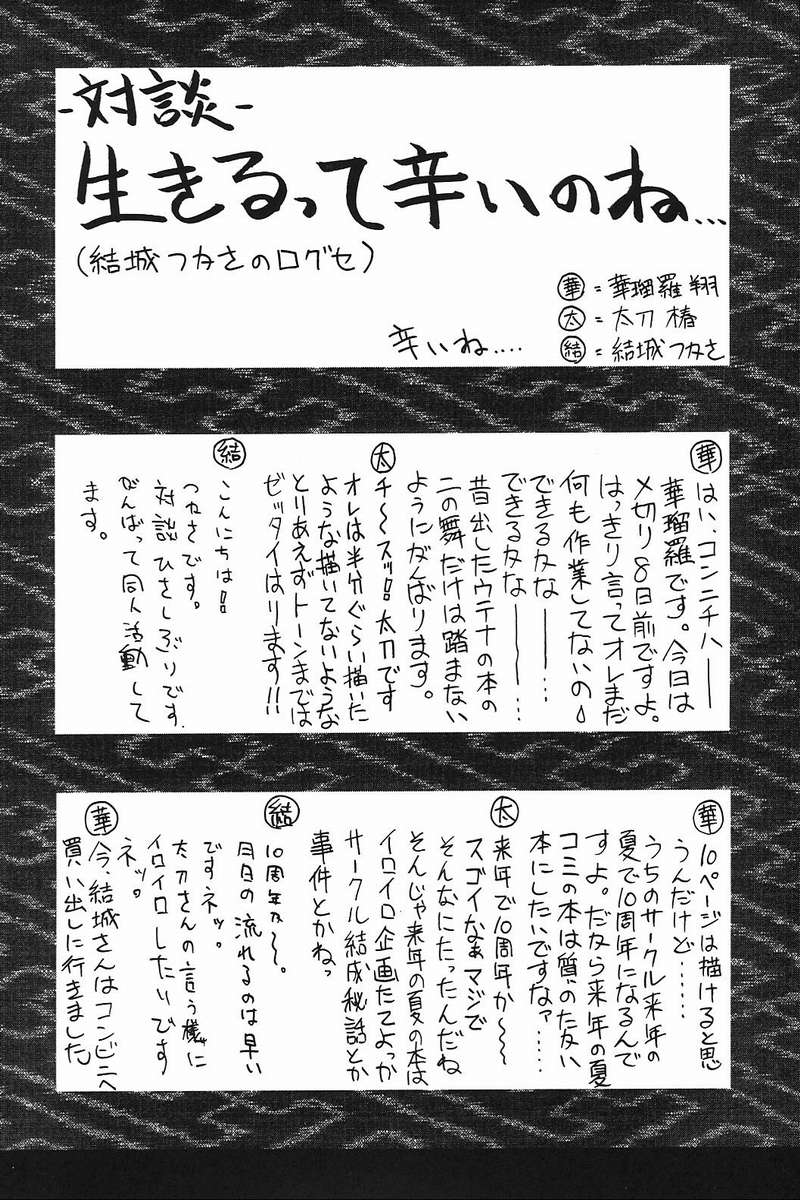 -対談-
生きるって辛いのね…
（結城つかさのログセ）
辛いね‥‥
華=華瑠羅翔
太=太刀椿
結=結城つかさ
華
はい、コンニチハ――
華瑠羅です。今日は
〆切り8日前ですよ。
はっきり言ってオレまだ
何も作業してないの
できるかな――…
できるかな――…
昔出したウテナの本の
二の舞だけは踏まない
ようにがんばります。
太
チ～スッ!!太刀です
オレは半分ぐらい描いた
ような描いてないような
とりあえずトーンまでは
ゼッタイはります!!
結
こんにちは!!
つかさです。
対談ひさしぶりです.
がんばって同人活動して
ます。
華
10ページは描けると思
うんだけど……
うちのサークル来年の
夏で10周年になるんで
すよ。だから来年の夏
コミの本は質のたかい
本にしたいですなァ……
太
来年で10周年か～～
スゴイなぁマジで
そんなにたったんだね
そんじゃ来年の夏の本は
イロイロ企画たてよっか
サークル結成秘話とか
事件とかねっ
結
10周年か～。
月日の流れるのは早い
ですネッ。
太刀さんの言う様に
イロイロしたいです
ネッ。
華
今、結城さんはコンビニへ
買い出しに行きました